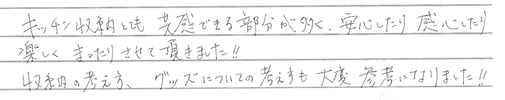 キッチン収納とても 共感できる部分が多く、安心したり 感心したり
楽しく まったりさせて頂きました!!
収納の考え方、グッズについての考え方も 大変 参考になりました!!